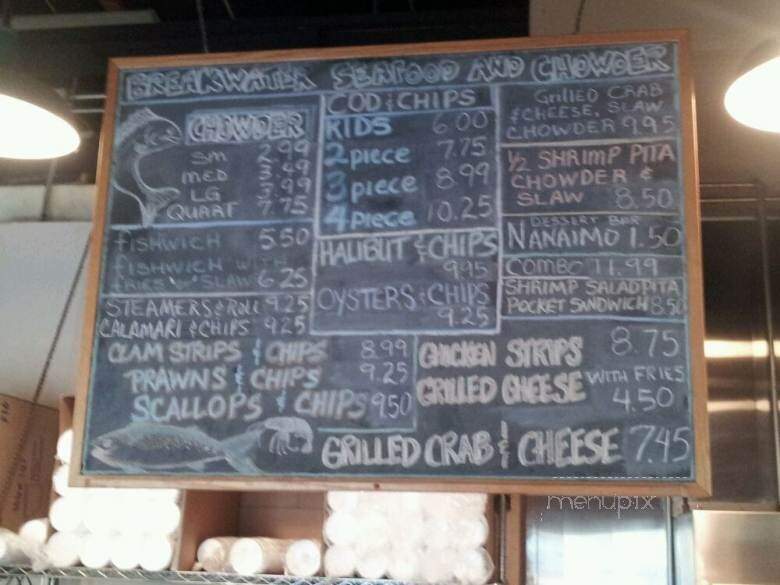 BREAKWATER SEAFOOD AND CHOWDER
CHOWDER
SM 2.99
MED 3.49
LG 3.99
QUART 7.75
FISHWICH 5.50
FISHWICH WITH
FRIES OR SLAW 6.25
STEAMERS & ROLL 9.25
CALAMARI & CHIPS 9.25
CLAM STRIPS & CHIPS 8.99
PRAWNS & CHIPS 9.25
SCALLOPS & CHIPS 9.50
COD & CHIPS
KIDS 6.00
2 PIECE 7.75
3 PIECE 8.99
4 PIECE 10.25
HALIBUT & CHIPS
9.95
OYSTERS & CHIPS
9.25
GRILLED CRAB
& CHEESE, SLAW
CHOWDER 9.95
1/2 SHRIMP PITA
CHOWDER &
SLAW 8.50
DESSERT BAR
NANAIMO 1.50
COMBO 11.99
SHRIMP SALAD PITA
POCKET SANDWICH 8.50
CHICKEN STRIPS 8.75
GRILLED CHEESE WITH FRIES
4.50
GRILLED CRAB & CHEESE 7.45
menupix